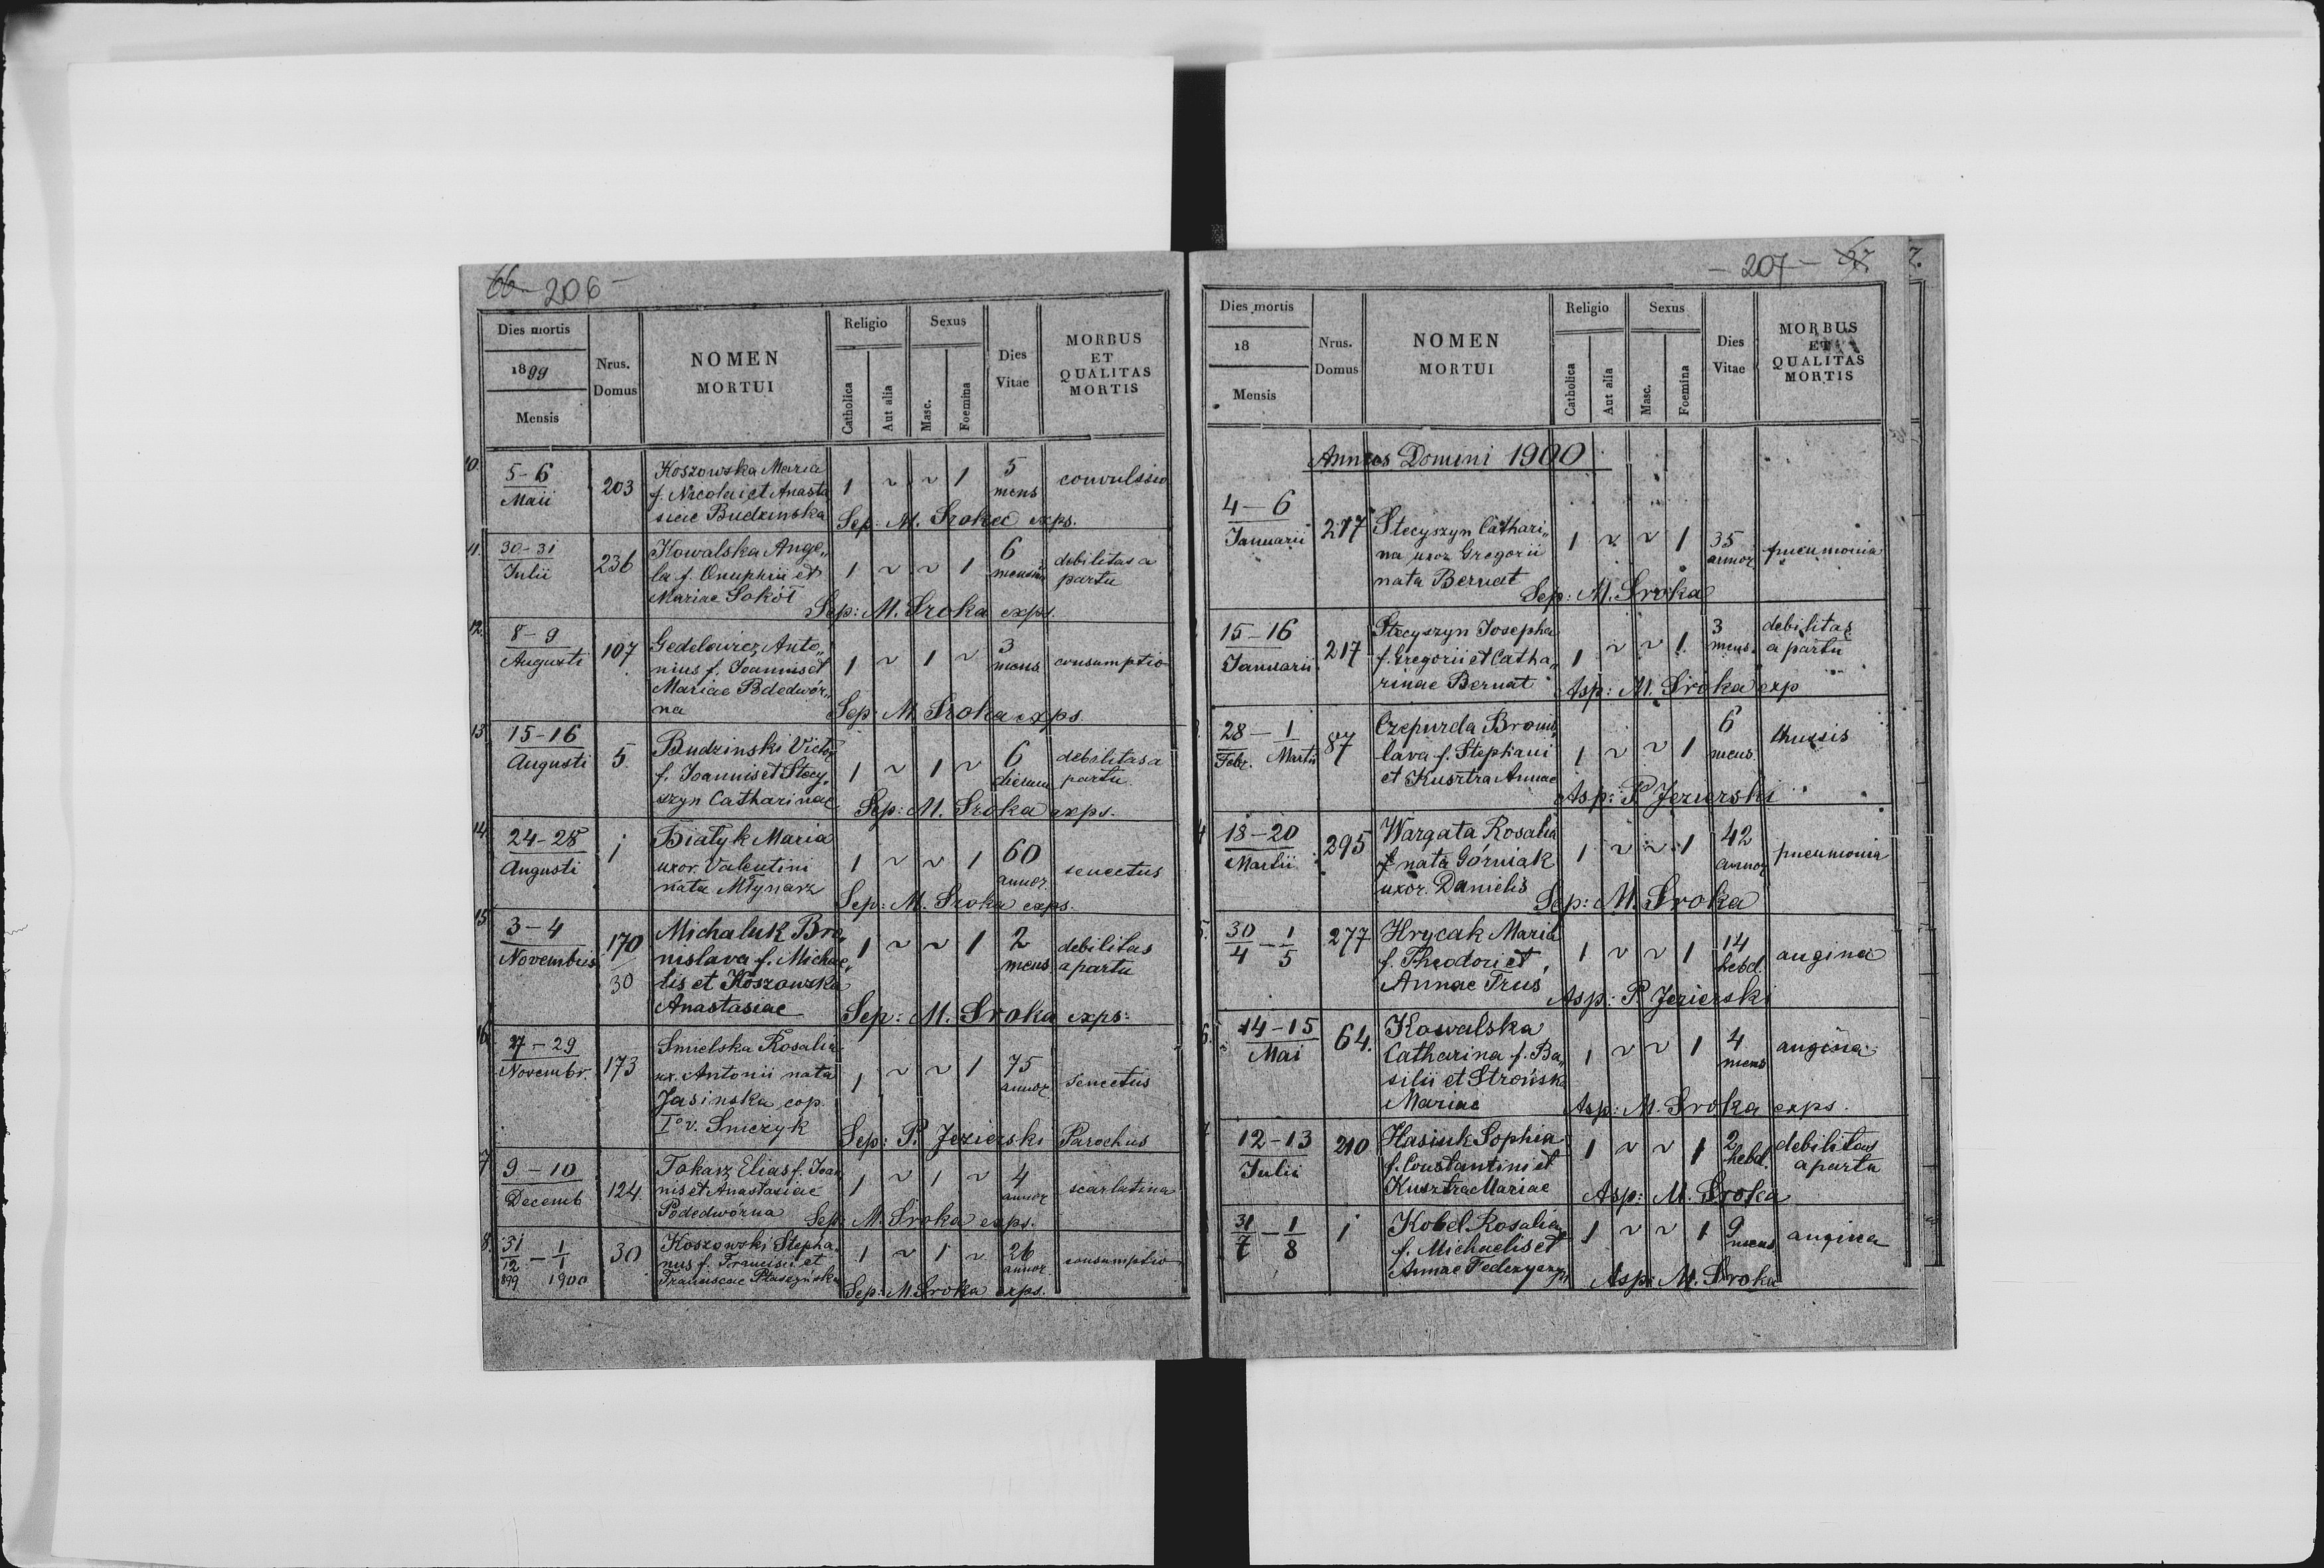 66 - 206 -
Dies mortis
1899
Mensis
Nrus.
Domus
NOMEN
MORTUI
Religio
Catholica
Aut alia
Sexus
Masc.
Foemina
Dies
Vitae
MORBUS
ET
QUALITAS
MORTIS
10.
5-6
Maii
203
Koszowska Maria
f. Nicolai et Anasta
siae Budzinska
1 ~ ~ 1
5
mens
convulsio
Sep: M. Sroka exps.
11.
30-31
Julii
236
Kowalska Ange„
la f. Onuphrii et
Mariae Sokół
1 ~ ~ 1
6
mensium
debilitas a
partu
Sep: M. Sroka exps.
12.
8-9
Augusti
107
Gedelowicz Anto„
nius f. Joannis et
Mariae Podedwór„
na
1 ~ 1 ~
3
mens
consumptio
Sep: M. Sroka exps
13.
15-16
Augusti
5.
Budzinski Victor
f. Joannis et Stecy„
szyn Catharinae
1 ~ 1 ~
6
dierum
debilitas a
partu
Sep: M. Sroka exps.
14.
24-28
Augusti
1
Białyk Maria
uxor. Valentini
nata Młynarz
1 ~ ~ 1
60
annor.
senectus
Sep: M. Sroka exps.
15
3-4
Novembris
170
30
Michaluk Bro„
nislava f. Michae„
lis et Koszowska
Anastasiae
1 ~ ~ 1
2
mens
debilitas
a partu
Sep: M. Sroka exps:
16
27-29
Novembr.
173
Smielska Rosalia
ux. Antonii nata
Jasinska cop.
I° v. Smczyk
1 ~ ~ 1
75
annor.
senectus
Sep: P. Jezierski Parochus
7
9-10
Decemb.
124.
Tokarz Elias f. Joan
nis et Anastasiae
Podedwórna
1 ~ 1 ~
4
annor
scarlatina
Sep: M. Sroka exps.
8.
31 - 1
12 1
899 1900
30
Koszowski Stepha„
nus f. Francisci et
Franciscae Ptaszyńska
1 ~ 1 ~
26
annor
consumptio
Sep: M. Sroka exps.
- 207 - 67
7.
Dies mortis
18
Mensis
Nrus.
Domus
NOMEN
MORTUI
Religio
Catholica
Aut alia
Sexus
Masc.
Foemina
Dies
Vitae
MORBUS
ET
QUALITAS
MORTIS
Annus Domini 1900
4-6
Januarii
217
Stecyszyn Cathari„
na uxor Gregorii
nata Bernat
1 ~ ~ 1
35
annor
pneumonia
Sep: M. Sroka
15-16
Januarii
217
Stecyszyn Josepha
f. Gregorii et Catha„
rinae Bernat
1 ~ ~ 1.
3
mens.
debilitas
a partu
Asp: M. Sroka exp
28 - 1
Febr. Martii
87
Czepurda Bronis
lava f. Stephani
et Kusztra Annae
1 ~ ~ 1
6
mens.
thussis
Asp: P. Jezierski
4
18-20
Martii
295
Wargata Rosalia
nata Górniak
uxor. Danielis
1 ~ ~ 1
42
annor
pneumonia
Sep: M. Sroka
5.
30 - 1
4 5
277
Hrycak Maria
f. Theodori et
Annae Trus
1 ~ ~ 1
14
hebd.
angina
Asp: P. Jezierski
6.
14-15
Mai
64.
Kowalska
Catharina f. Ba„
silii et Strońska
Mariae
1 ~ ~ 1
4
mens
angina
Asp: M. Sroka exps.
7
12-13
Julii
210
Hasiuk Sophia
f. Constantini et
Kusztra Mariae
1 ~ ~ 1
2
hebd.
debilitas
a partu
Asp: M. Sroka
31 - 1
7 8
1
Kobel Rosalia
f. Michaelis et
Annae
1 ~ ~ 1
9
mens
angina
Asp: M. Sroka